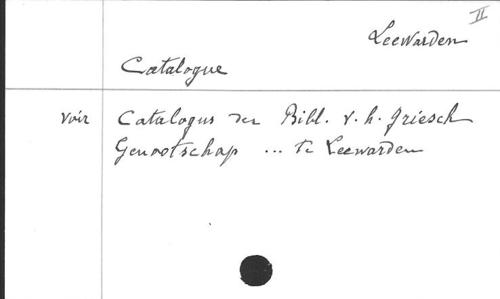 II
Leewarden
Catalogue
voir Catalogus der Bibl. v. h. Friesch
Genootschap ... te Leewarden